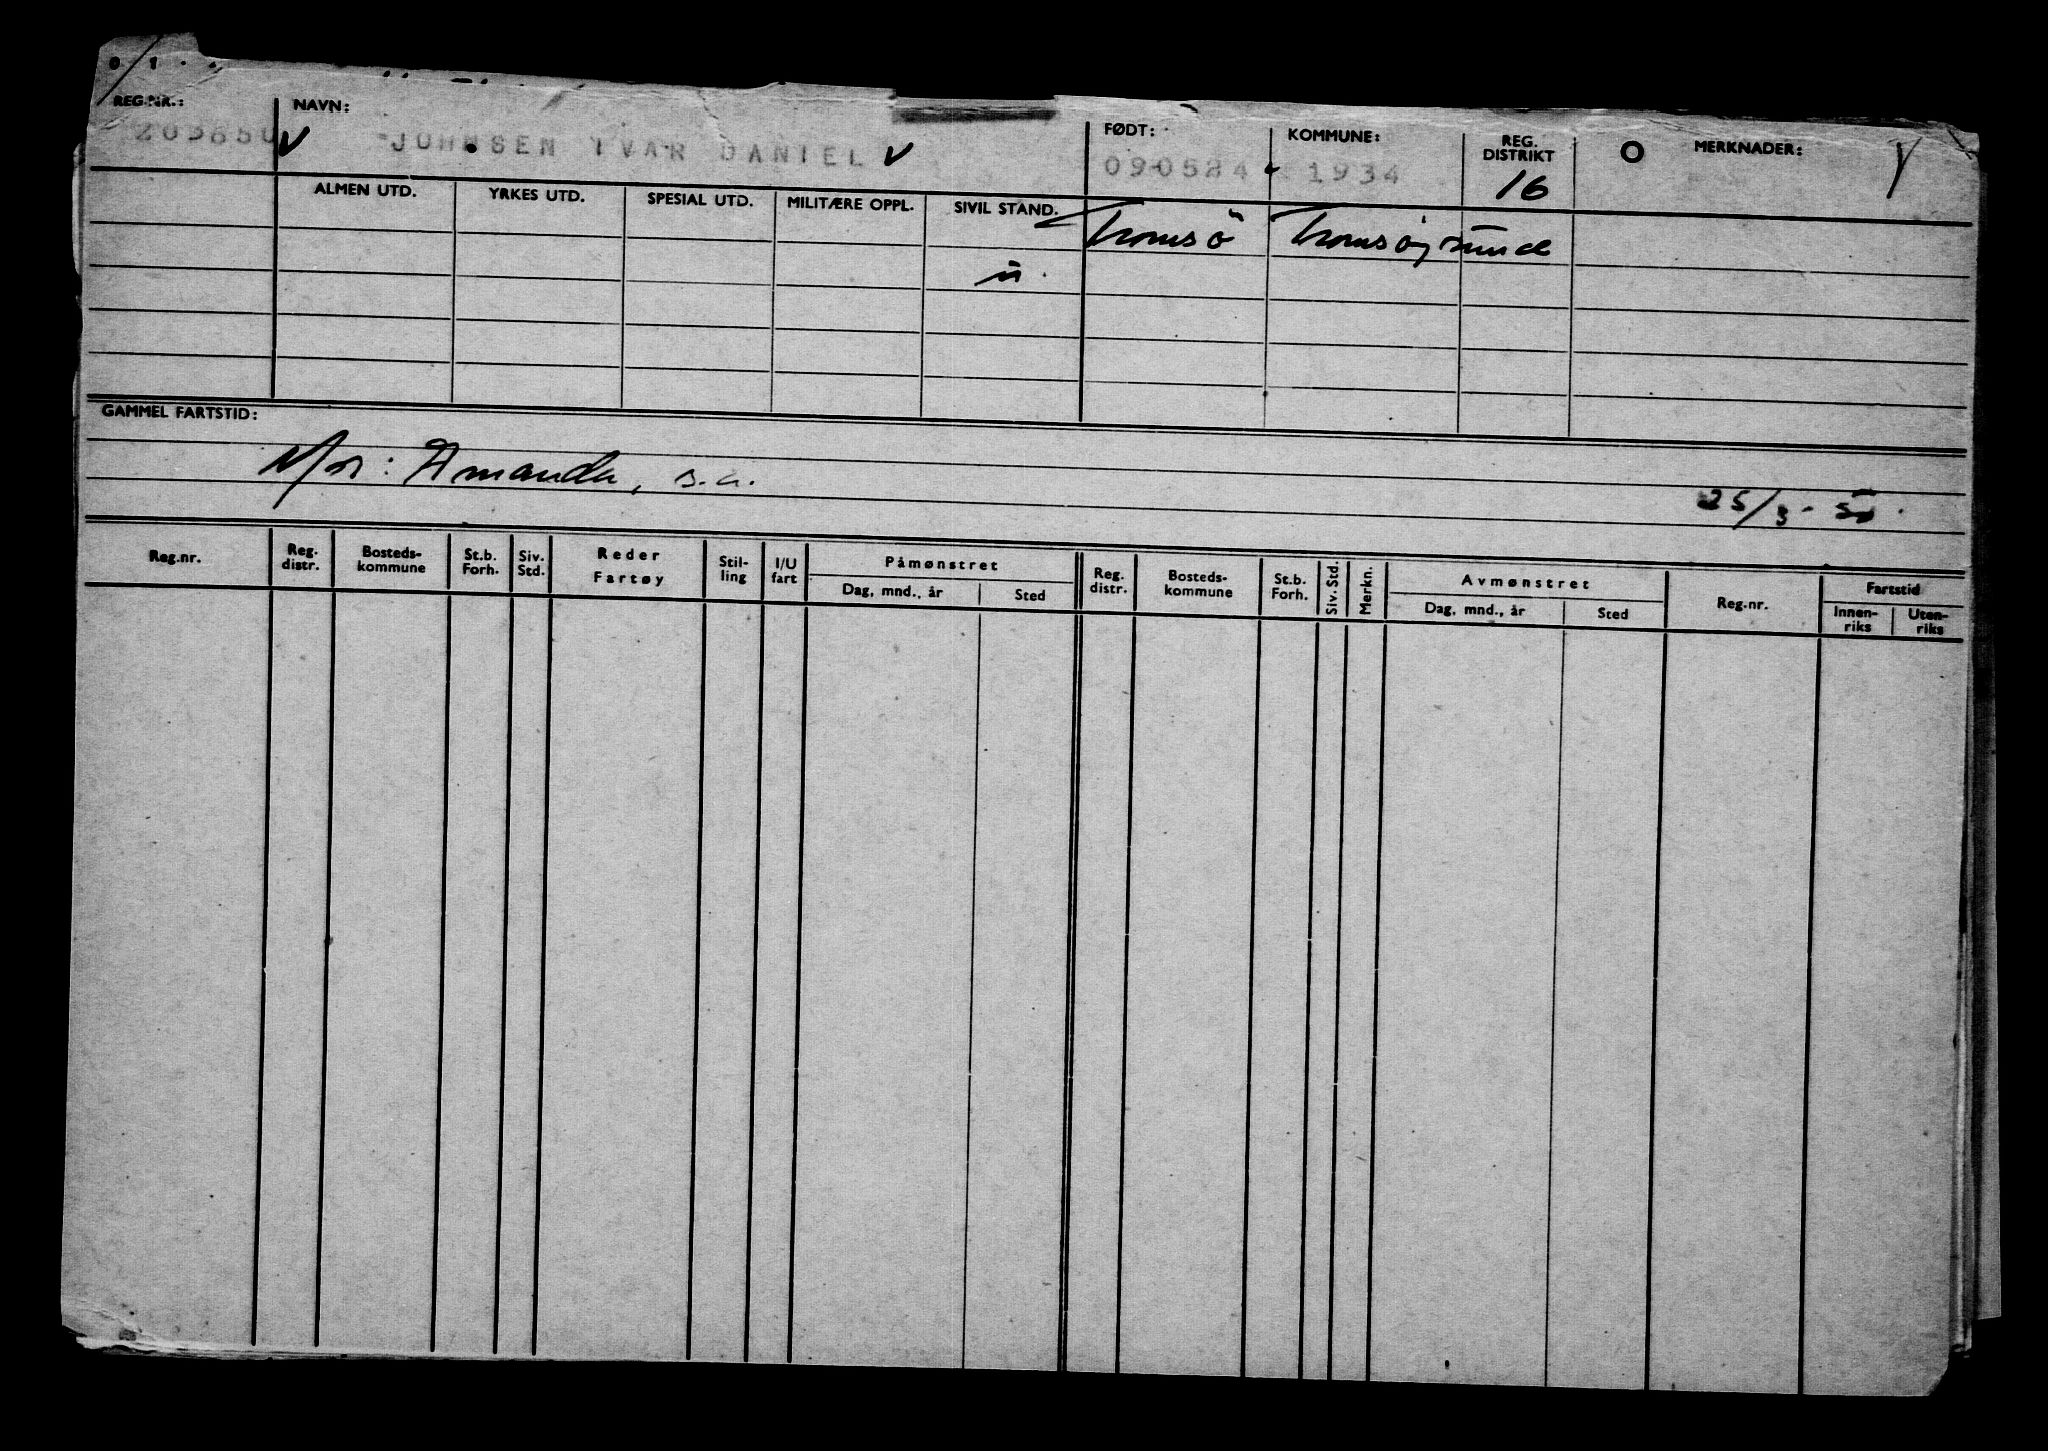 0 1
REG.NR.: NAVN: FØDT: KOMMUNE: REG. DISTRIKT O MERKNADER:
203850 JOHNSEN IVAR DANIEL 090524 1934 16
ALMEN UTD. YRKES UTD. SPESIAL UTD. MILITÆRE OPPL. SIVIL STAND.
Tromsø Tromsøysund
u
GAMMEL FARTSTID:
Mor: Amanda, s.a.
25/3-50
Reg.nr. Reg. distr. Bosteds-kommune St.b. Forh. Siv. Std. Reder Fartøy Stil-ling I/U fart Påmønstret Dag, mnd., år Sted Reg. distr. Bosteds-kommune St.b. Forh. Siv. Std. Merkn. Avmønstret Dag, mnd., år Sted Reg.nr. Fartstid Innen-riks Uten-riks